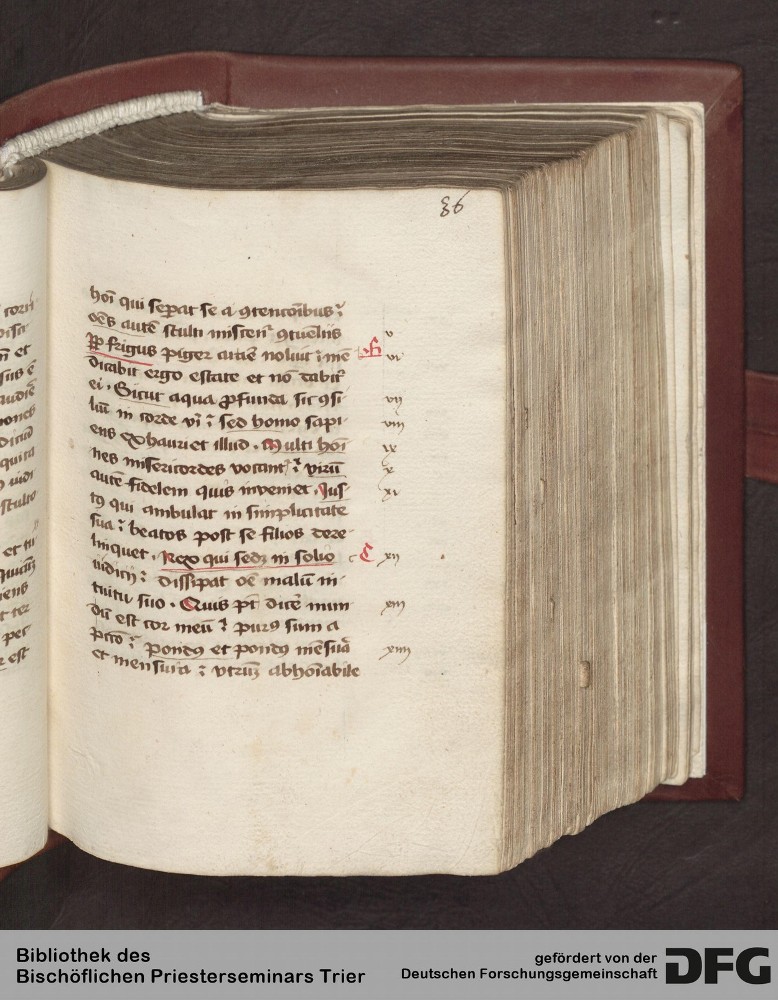 36
hoi qui seꝑat se a ꝯtencoibus ؛
oēs autē stulti miscent᷑ ꝯtueliis v
Ꝓp frigus piger arare noluit ؛ mē B vi
dicabit ergo estate et nō dabit᷑
ei · Sicut aqua ꝓfunda sic ꝯsi vii
liū in corde vi ؛ sed homo sapi viii
ens exhauriet illud · Multi hoī ix
nes misericordes vocant᷑ ؛ virū x
autē fidelem quis inveniet · Jus xi
tꝰ qui ambulat in simplicitate
sua ؛ beatos post se filios dere
linquet · Rex qui sedꝫ in solio C xii
iudicij ؛ dissipat oē malū in
tuitu suo · Quis pt̄ dicē̄ mun xiii
dū est cor meū ؛ purꝰ sum a
pctō ؛ pondꝰ et pondꝰ mēsura xiiii
et mensura ؛ vtrūqꝫ abhoiabile
Bibliothek des
Bischöflichen Priesterseminars Trier
gefördert von der
Deutschen Forschungsgemeinschaft
DFG